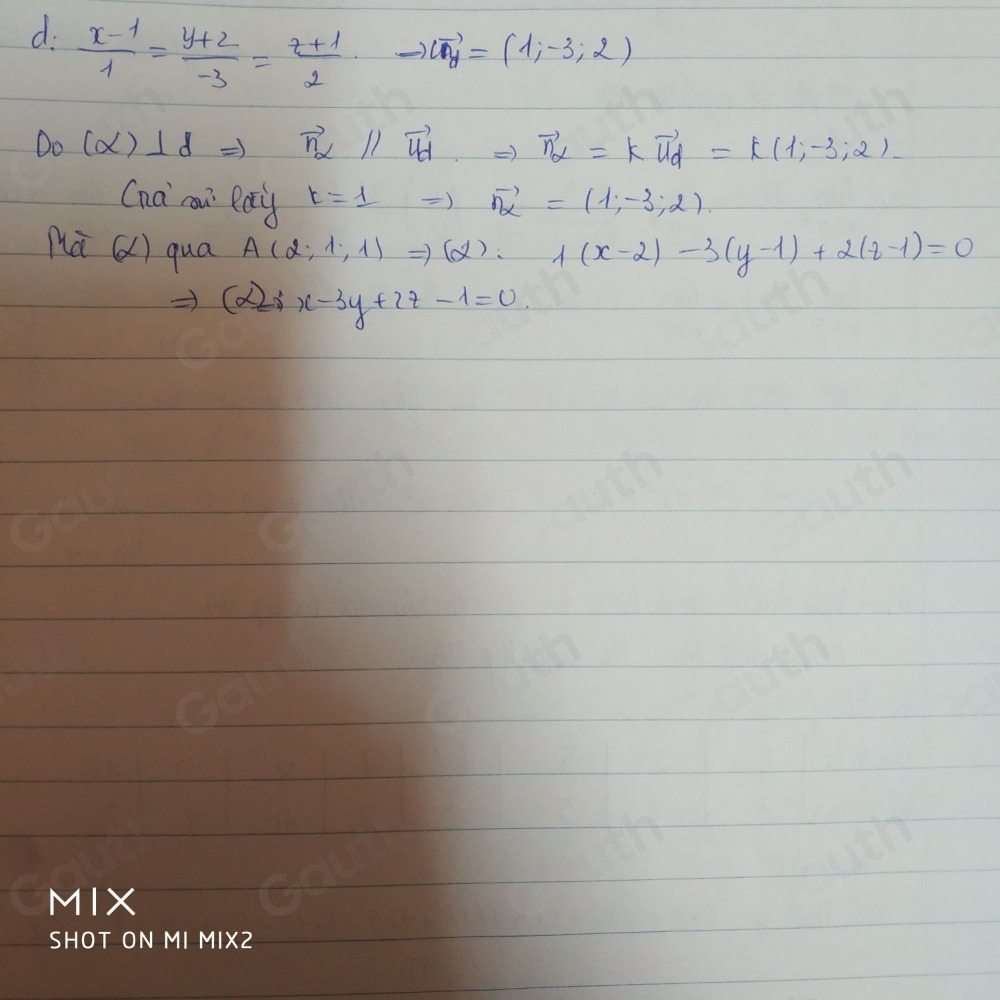 d: \frac{x-1}{1} = \frac{y+2}{-3} = \frac{z+1}{2}. → \vec{u_d} = (1;-3;2)
Do (α) ⊥ d ⇒ \vec{n_α} // \vec{u_d}. ⇒ \vec{n_α} = k \vec{u_d} = k(1;-3;2).
Giả sử lấy k = 1 ⇒ \vec{n_α} = (1;-3;2).
Mà (α) qua A(2;1;1) ⇒ (α): 1(x-2) -3(y-1) + 2(z-1) = 0
⇒ (α): x-3y+2z-1=0.
MIX
SHOT ON MI MIX2